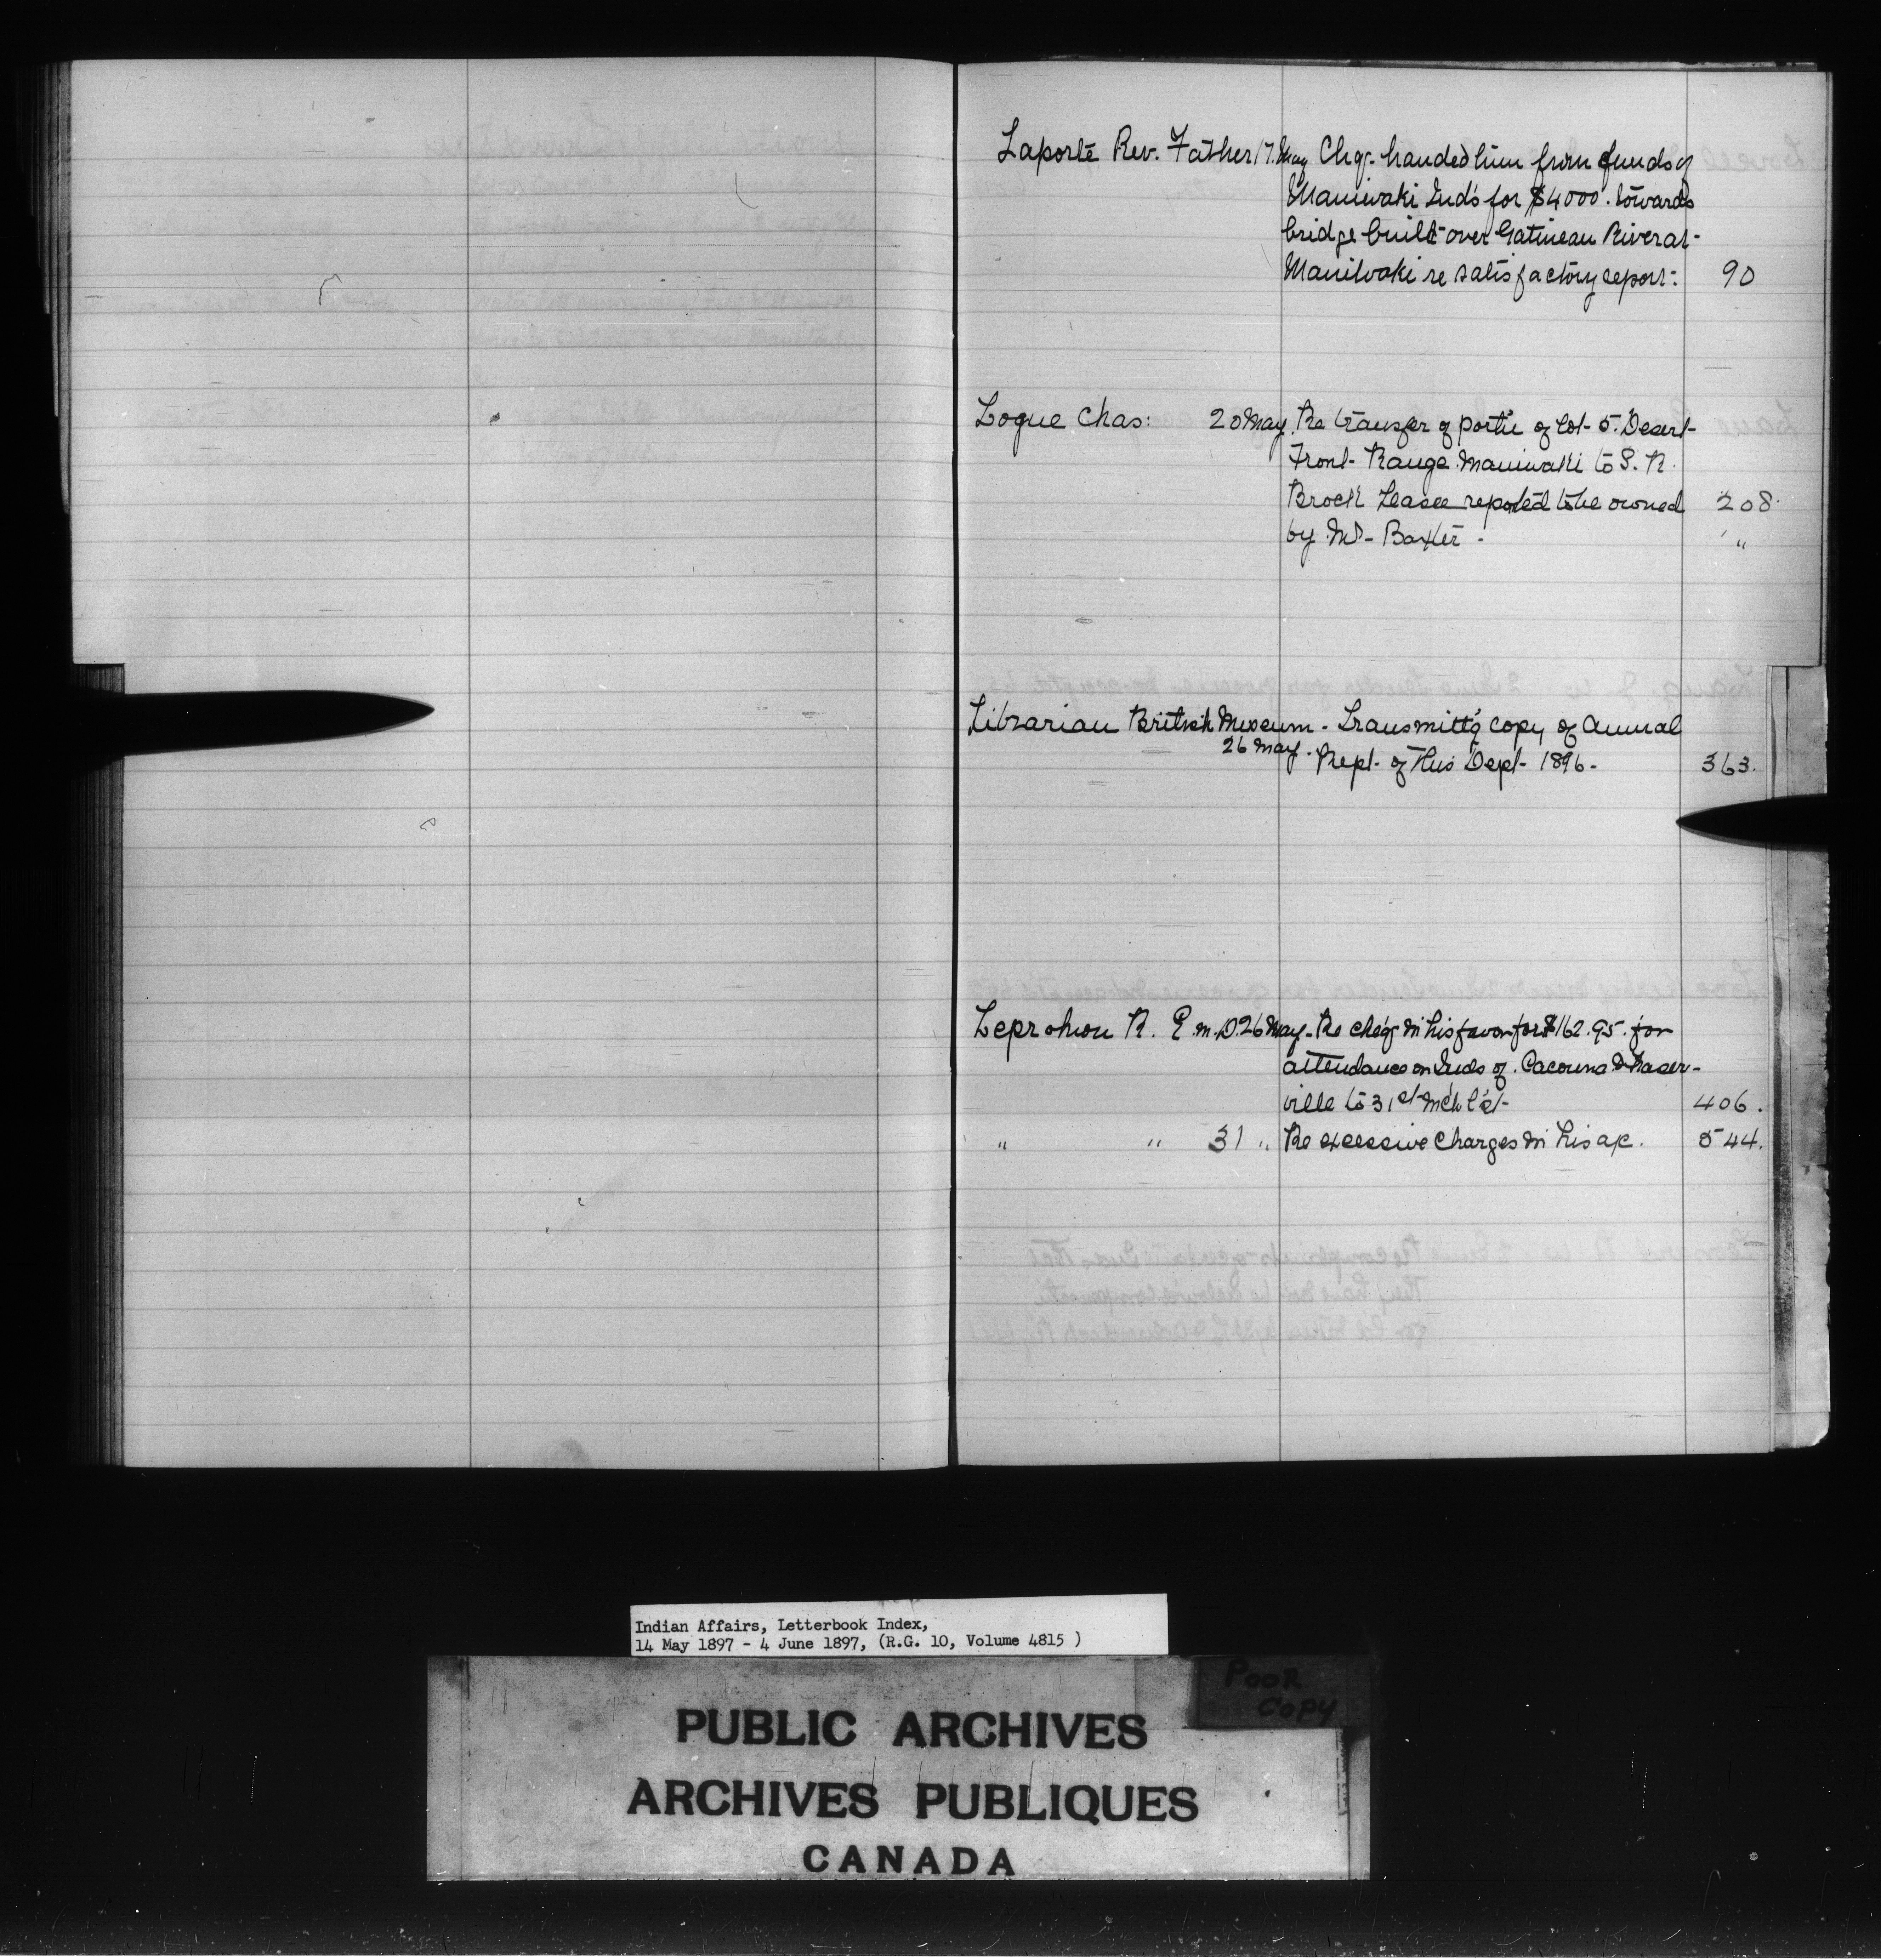 Laporte Rev. Father 17. May Chq. handed him from funds of
Maniwaki Inds for $4000. towards
bridge built over Gatineau River at
Maniwaki re satisfactory report. 90
Logue Chas: 20 May. Re transfer of port'n of Lot 5. Desert
Front Range Maniwaki to S. R.
Brock Lease reported to be owned 208.
by Mr Baxter - "
Librarian British Museum - Transmitt'g copy of Annual
26 May. Rept. of this Dept 1896 - 363.
Leprohon R. E. M.D. 26 May. Re cheq in his favor for $162.95. for
attendance on Inds of. Cacouna & Fraser-
ville to 31st Mch l'st 406.
" " 31 " Re excessive charges in his a/c. 544.
Indian Affairs, Letterbook Index,
14 May 1897 - 4 June 1897, (R.G. 10, Volume 4815 )
POOR
COPY
PUBLIC ARCHIVES
ARCHIVES PUBLIQUES
CANADA